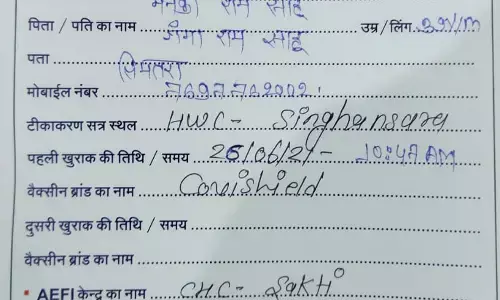 मनका राम साहू
पिता / पति का नाम गंगा राम साहू उम्र / लिंग
पता सिमतरा
मोबाईल नंबर
टीकाकरण सत्र स्थल HWC- Singhansara
पहली खुराक की तिथि / समय 26/06/21- 10:47 AM
वैक्सीन ब्रांड का नाम Covishield
दुसरी खुराक की तिथि / समय
वैक्सीन ब्रांड का नाम
AEFI केन्द्र का नाम CHC- Sakti